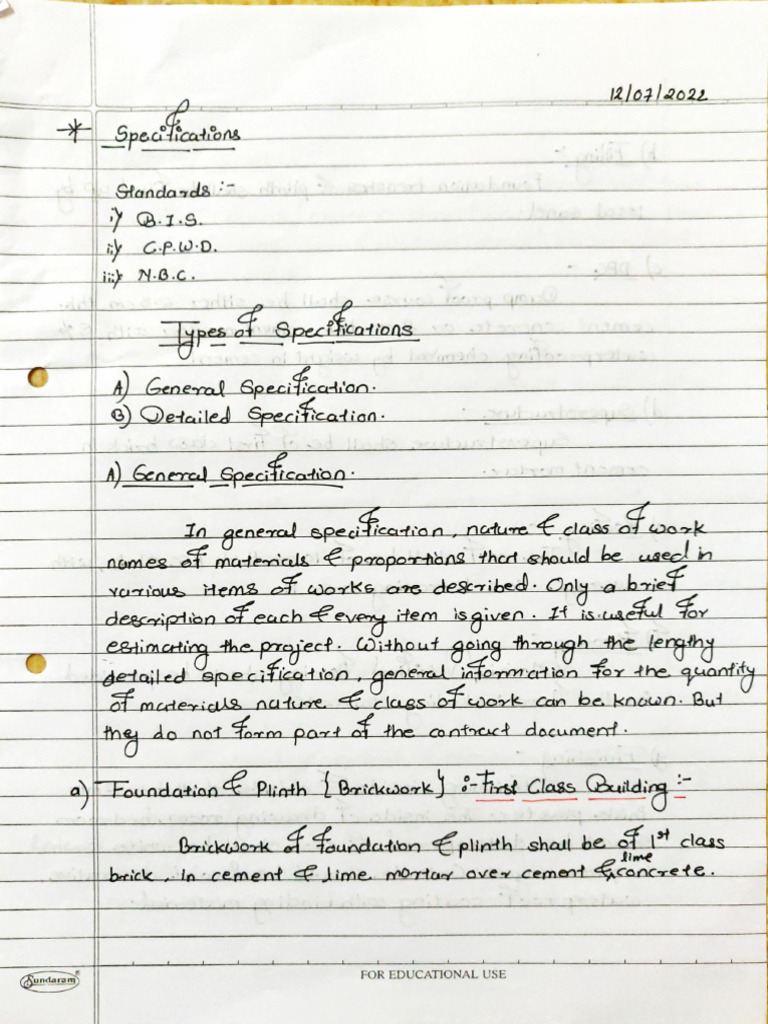 12/07/2022
* Specifications
Standards :-
i) B.I.S.
ii) C.P.W.D.
iii) N.B.C.
Types of Specifications
A) General Specification.
B) Detailed Specification.
A) General Specification.
In general specification, nature & class of work
names of materials & proportions that should be used in
various items of works are described. Only a brief
description of each & every item is given. It is useful for
estimating the project. Without going through the lengthy
detailed specification, general information for the quantity
of materials nature & class of work can be known. But
they do not form part of the contract document.
a) Foundation & Plinth {Brickwork} :- First Class Building :-
Brickwork of foundation & plinth shall be of 1st class
brick, in cement & lime mortar over cement & lime concrete.
Sundaram®
FOR EDUCATIONAL USE